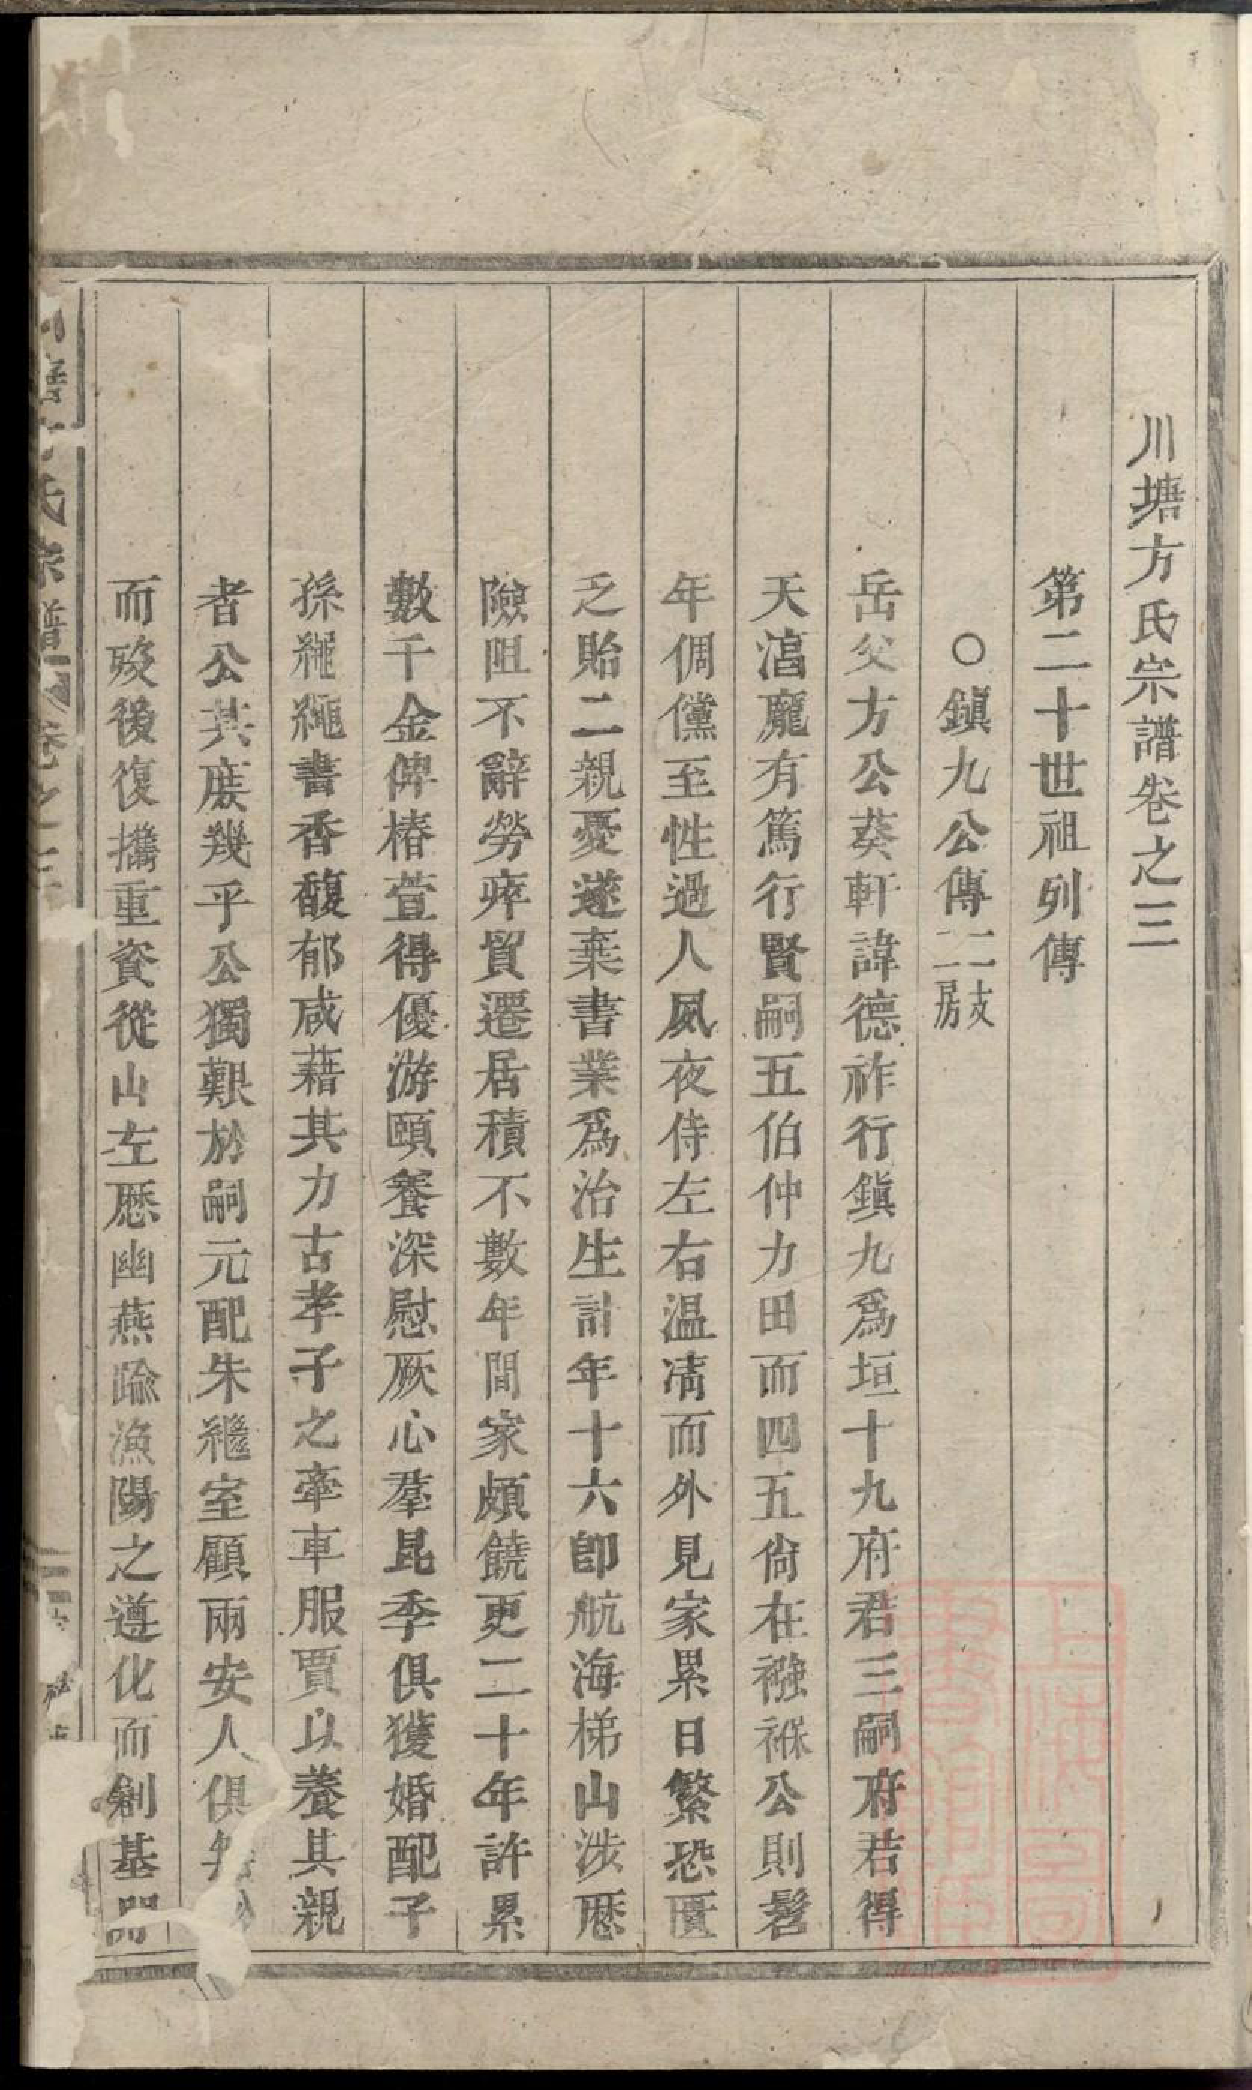 川塘方氏宗譜卷之三
第二十世祖列傳
○鎮九公傳二支二房
岳父方公葵軒諱德祚行鎮九爲垣十九府君三嗣府君得
天湻龐有篤行賢嗣五伯仲力田而四五尙在襁褓公則髫
年倜儻至性過人夙夜侍左右温凊而外見家累日繁恐匱
乏貽二親憂遂棄書業爲治生計年十六卽航海梯山涉歷
險阻不辭勞瘁貿遷居積不數年間家頗饒更二十年許累
數千金俾椿萱得優游頤養深慰厥心羣昆季俱獲婚配子
孫繩繩書香馥郁咸藉其力古孝子之牽車服賈以養其親
者公其庶幾乎公獨艱於嗣元配朱繼室顧兩安人俱無
而歿後復攜重資從山左歷幽燕踰漁陽之遵化而創基
氏宗譜 卷之三
上海圖書館藏